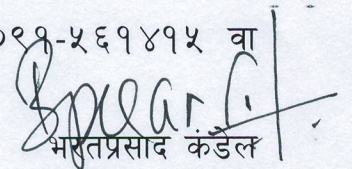 ०९१-५६१४१५ वा
भरतप्रसाद कंडेल